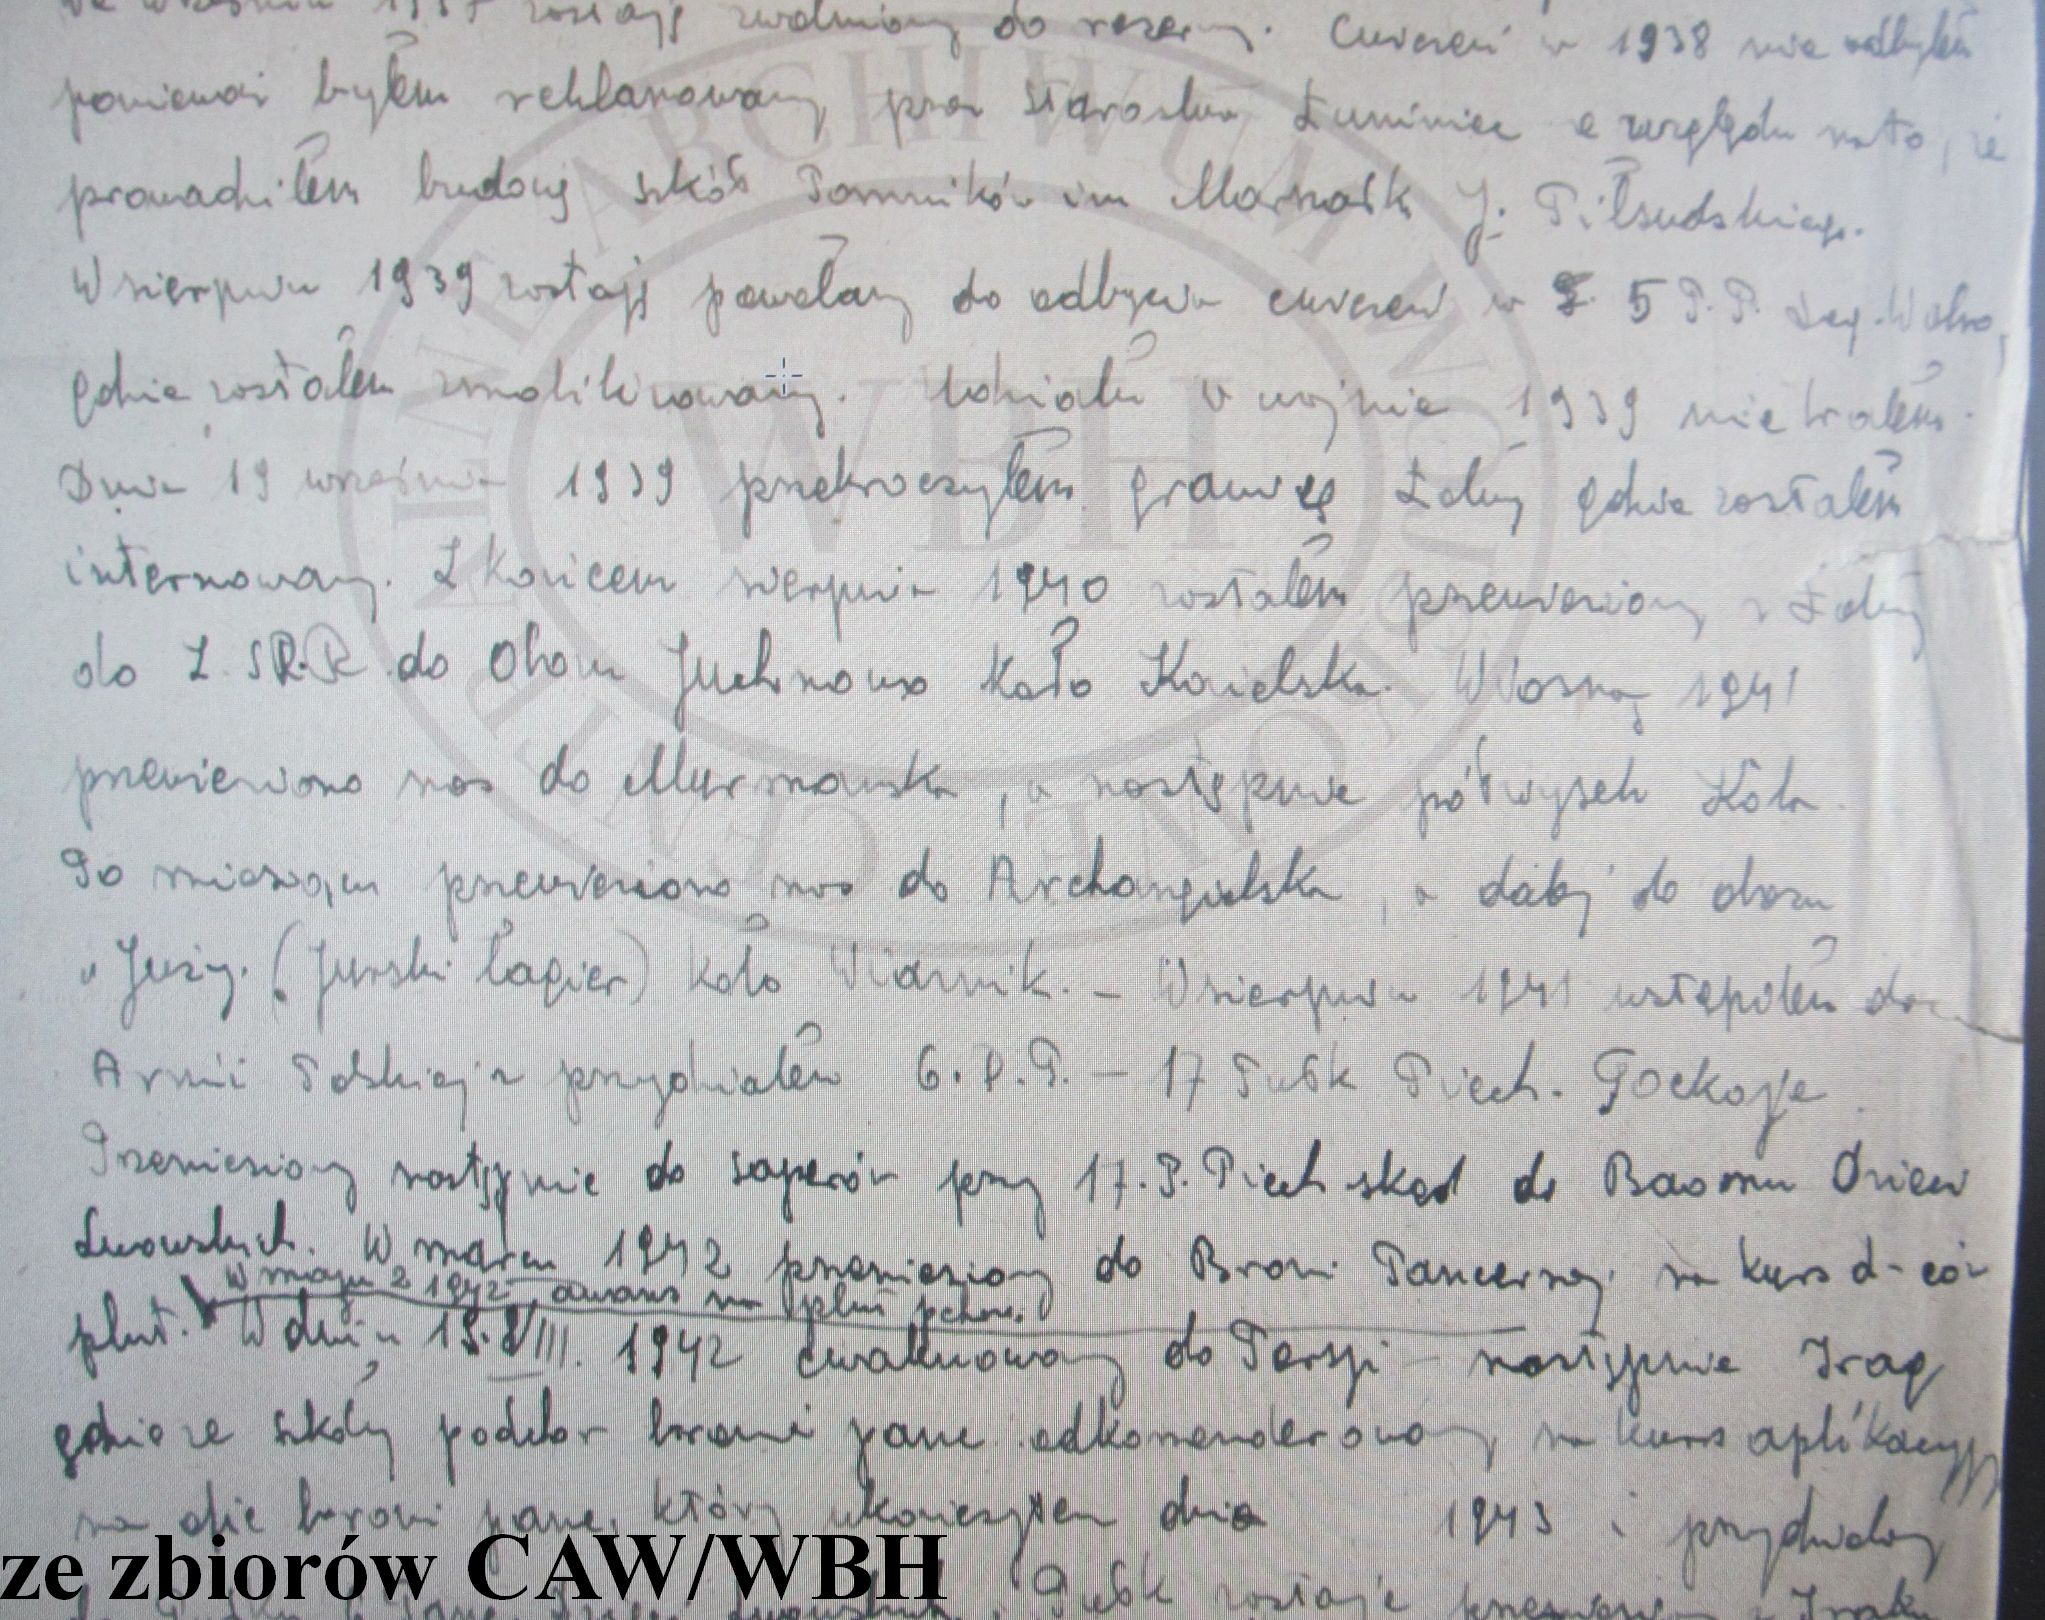 we wrześniu 1937 zostaję zwolniony do rezerwy. Ćwiczeń w 1938 nie odbyłem
ponieważ byłem reklamowany przez Starostwo Łuniniec z względu na to, że
prowadziłem budowę szkół Pomników im Marszałk J. Piłsudskiego.
W sierpniu 1939 zostaję powołany do odbycia ćwiczeń w 5 P.P. Leg. Wilno,
gdzie zostałem zmobilizowany. Udziału w wojnie 1939 nie brałem.
Dnia 19 września 1939 przekroczyłem granicę Łotwy gdzie zostałem
internowany. Z końcem sierpnia 1940 zostałem przewieziony z Łotwy
do Z.S.R.R. do Obozu Juchnowo koło Kozielska. Wiosną 1941
przewieziono nas do Murmańska, a następnie półwysep Kola
Po miesiącu przewieziono nas do Archangielska, a dalej do obozu
w Juży. (Jurski Łagier) koło Wiaznik. – W sierpniu 1941 wstąpiłem do
Armii Polskiej z przydziałem 6. D.P. – 17 Pułk Piech. Tockoje
Przeniesiony następnie do saperów przy 17. P. Piech skąd do Baonu Dzieci
Lwowskich. W marcu 1942 przeniesiony do Broni Pancernej na kurs d-ców
W maju 1942 awans na plut pchor.
plut. W dniu 15. VIII. 1942 ewakuowany do Persji – następnie Iraq
gdzie ze szkoły podchor broni panc odkomenderowany na kurs aplikacyjny
na ofic broni panc, który ukończyłem dnia 1943 i przydzielony
Pułk zostaje
ARCHIWUM
WBH
ze zbiorów CAW/WBH